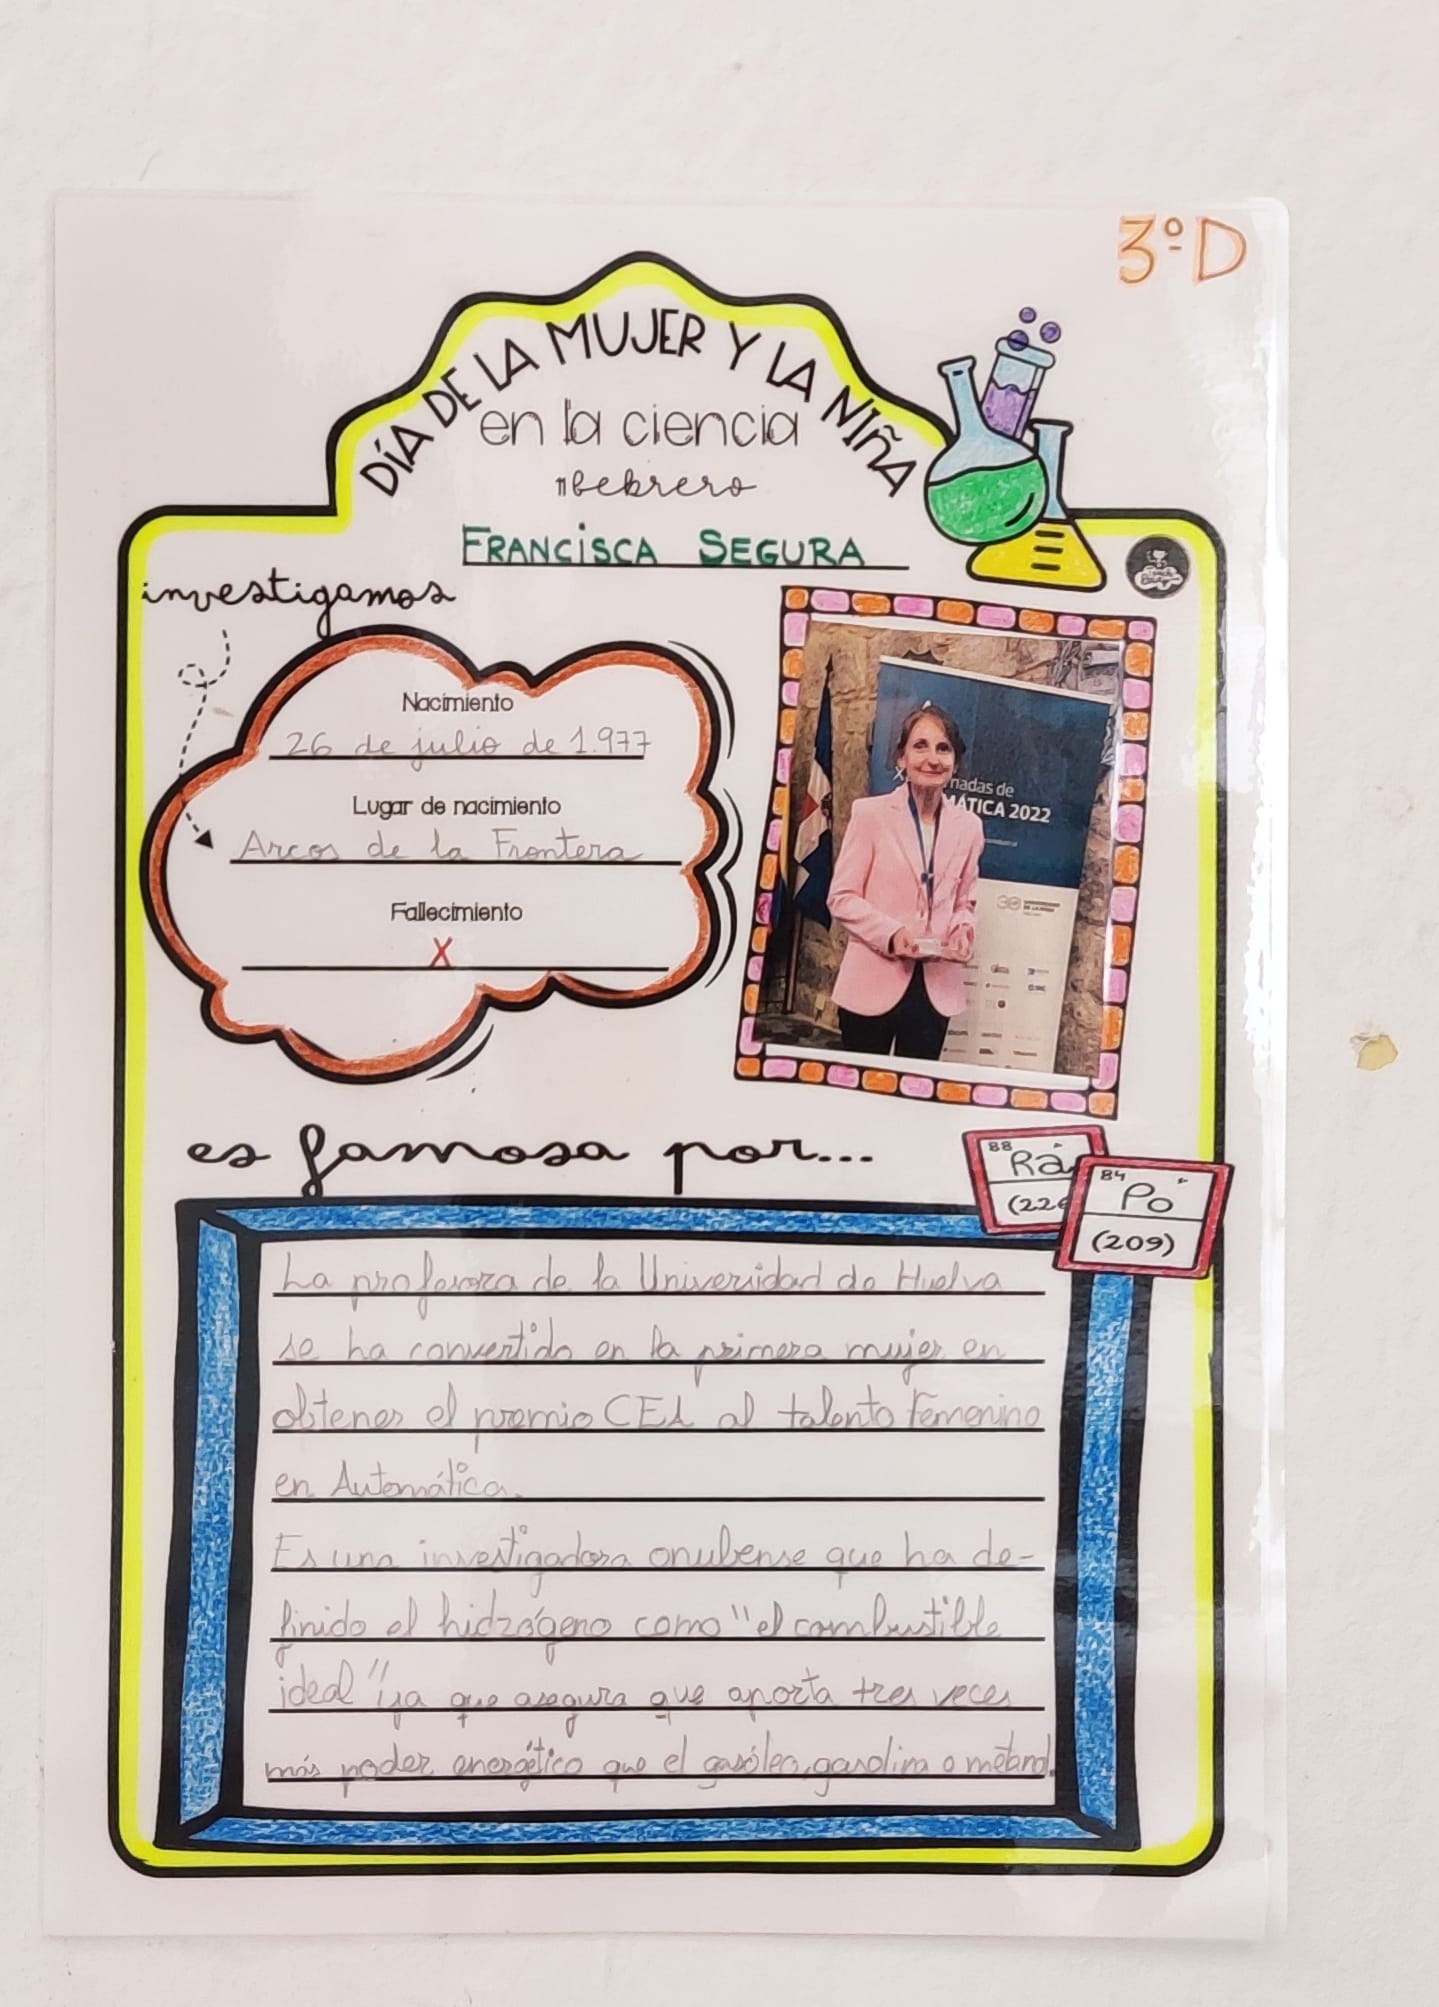 3º D
DÍA DE LA MUJER Y LA NIÑA
en la ciencia
11 febrero
FRANCISCA SEGURA
investigamos
Nacimiento
26 de julio de 1.977
Lugar de nacimiento
Arcos de la Frontera
Fallecimiento
X
X
nadas de
MÁTICA 2022
30
es famosa por...
88
Ra
(226
84
Po
(209)
La profesora de la Universidad de Huelva
se ha convertido en la primera mujer en
obtener el premio CEA al talento Femenino
en Automática.
Es una investigadora onubense que ha de-
finido el hidrógeno como "el combustible
ideal" ya que asegura que aporta tres veces
más poder energético que el gasóleo, gasolina o metano.